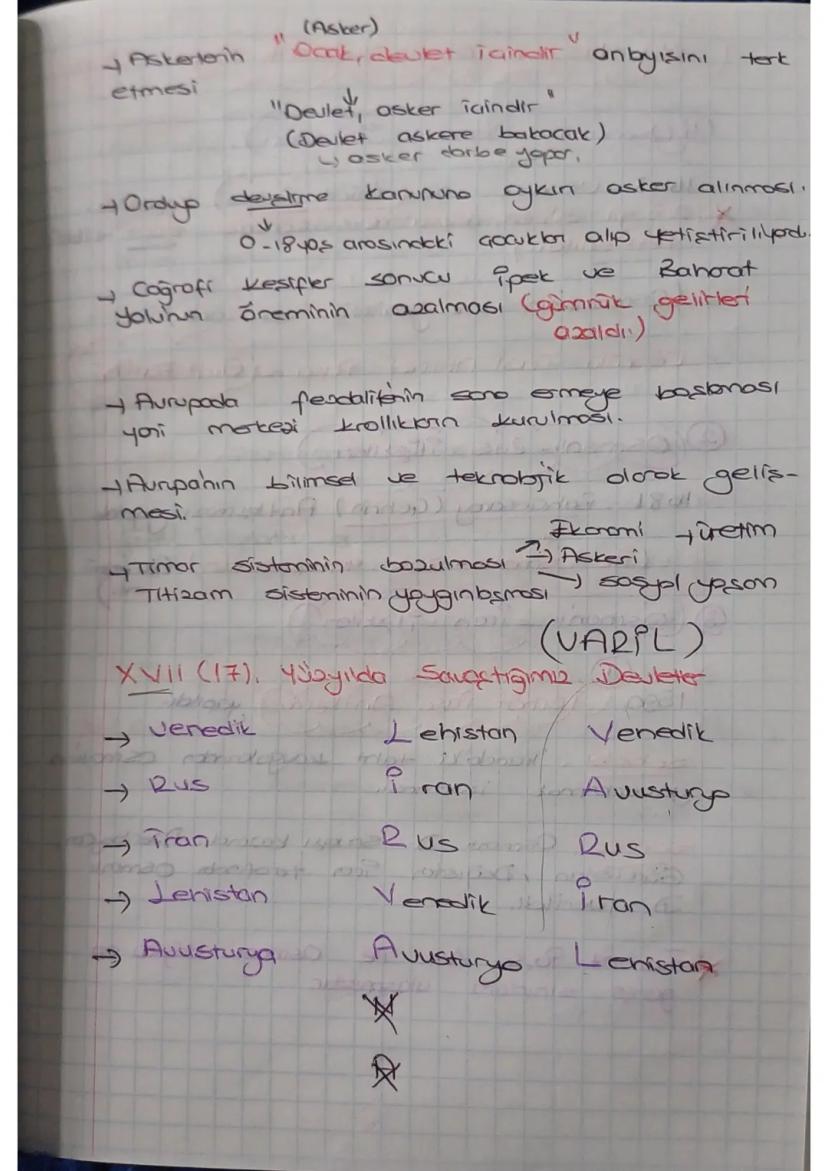 (Asker)
→ Askerlerin "Ocak, devlet içindir" anlayışını terk
etmesi
"Devlet, asker içindir"
(Devlet askere bakacak)
↳ asker darbe yapar.
→ Orduya devşirme kanununa aykırı asker alınması.
0-18 yaş arasındaki çocukları alıp yetiştiriliyordu.
→ Coğrafi keşifler sonucu İpek ve Baharat
yolunun öneminin azalması (gümrük gelirleri
azaldı.)
→ Avrupada feodalitenin sona ermeye başlaması
yani merkezi krallıkların kurulması.
→ Avrupanın bilimsel ve teknolojik olarak geliş-
mesi.
Ekonomi → üretim
→ Tımar sisteminin bozulması → Askeri
İltizam sisteminin yaygınlaşması → sosyal yaşam
(VARİL)
XVII (17). Yüzyılda Savaştığımız Devletler
→ Venedik Lehistan Venedik
→ Rus İran Avusturya
→ İran Rus Rus
→ Lehistan Venedik İran
→ Avusturya Avusturya Lehistan